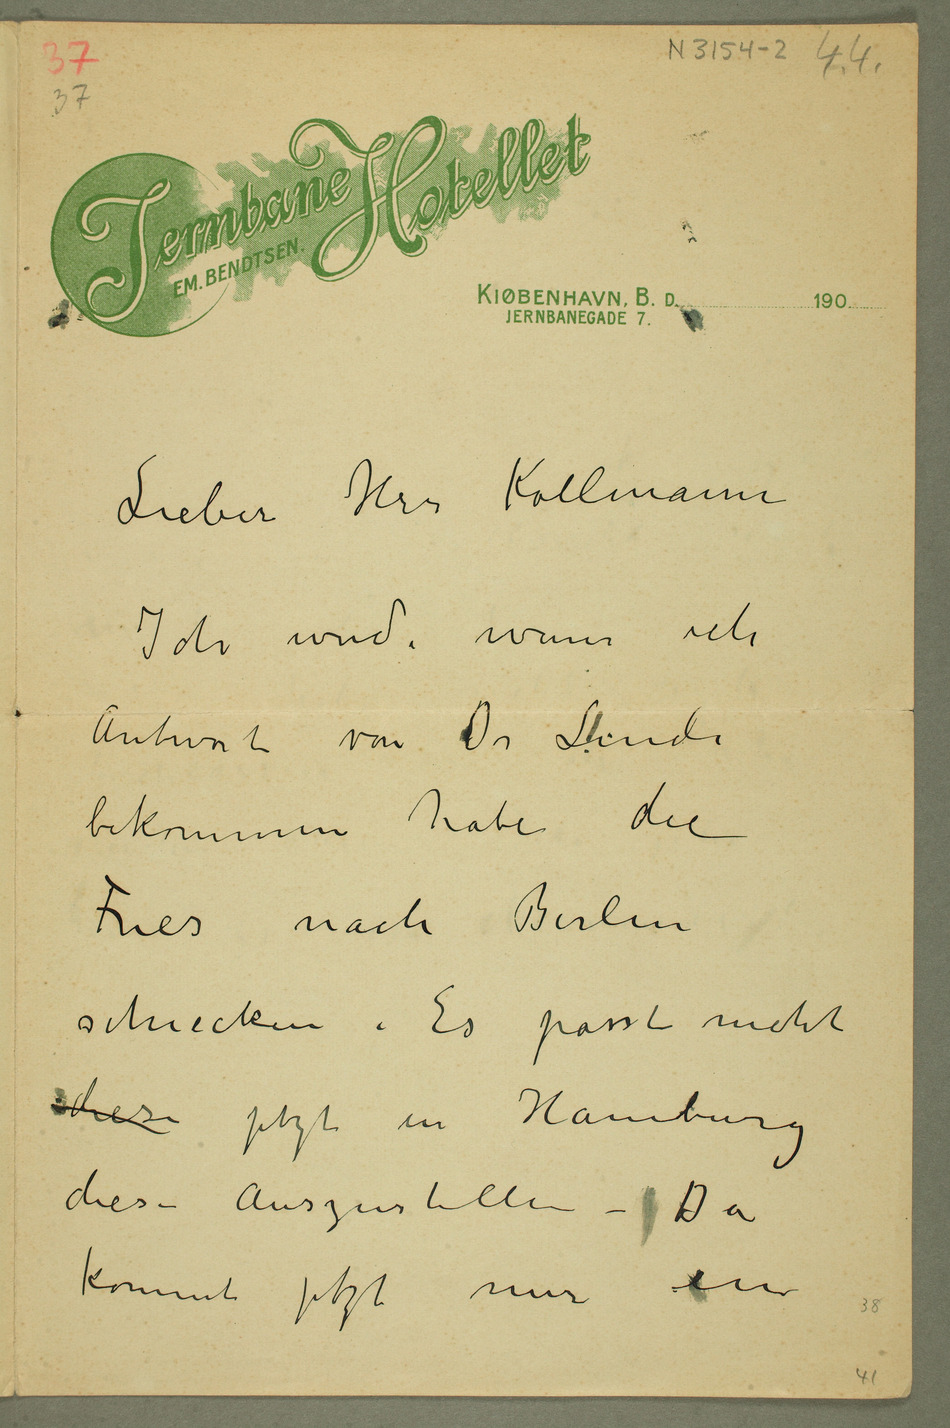 37
37
N 3154-2 4.4.
Jernbane Hotellet
EM. BENDTSEN.
KIØBENHAVN, B. D. 190
JERNBANEGADE 7.
Lieber Herr Kollmann
Ich werde wenn ich
Antwort von Dr Linde
bekommen habe die
Fries nach Berlin
schiecken. Es passt nicht
diese jetzt in Hamburg
diese Auszustellen – Da
kommt jetzt nur ein
38
41